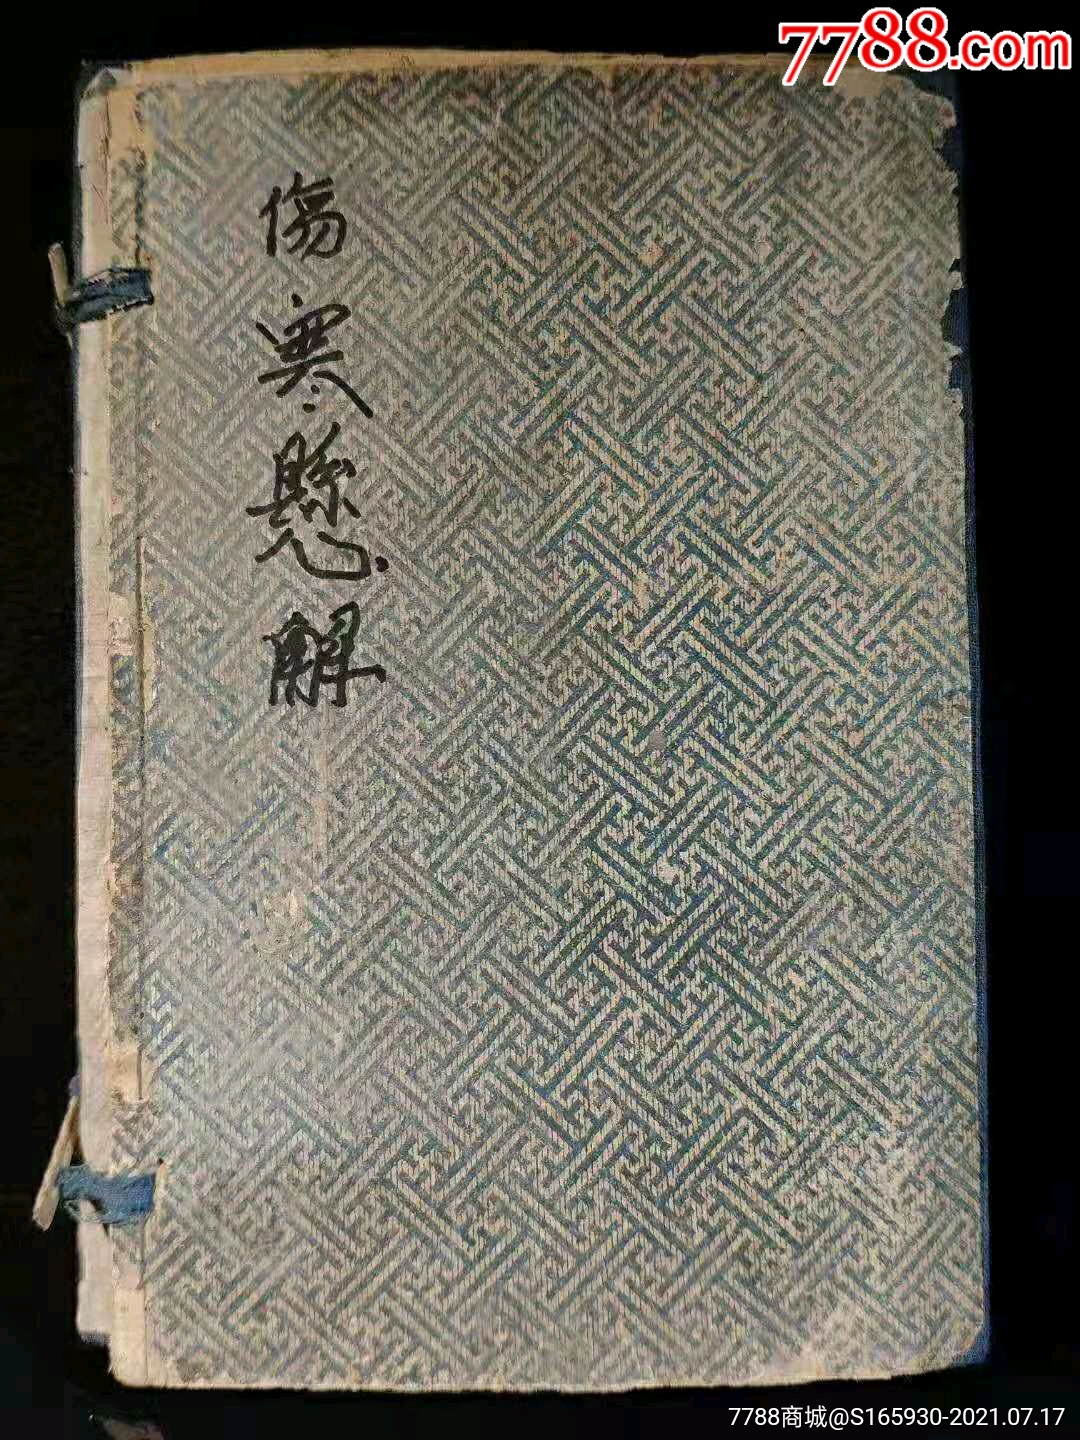 7788.com
傷寒懸解
7788商城@S165930-2021.07.17